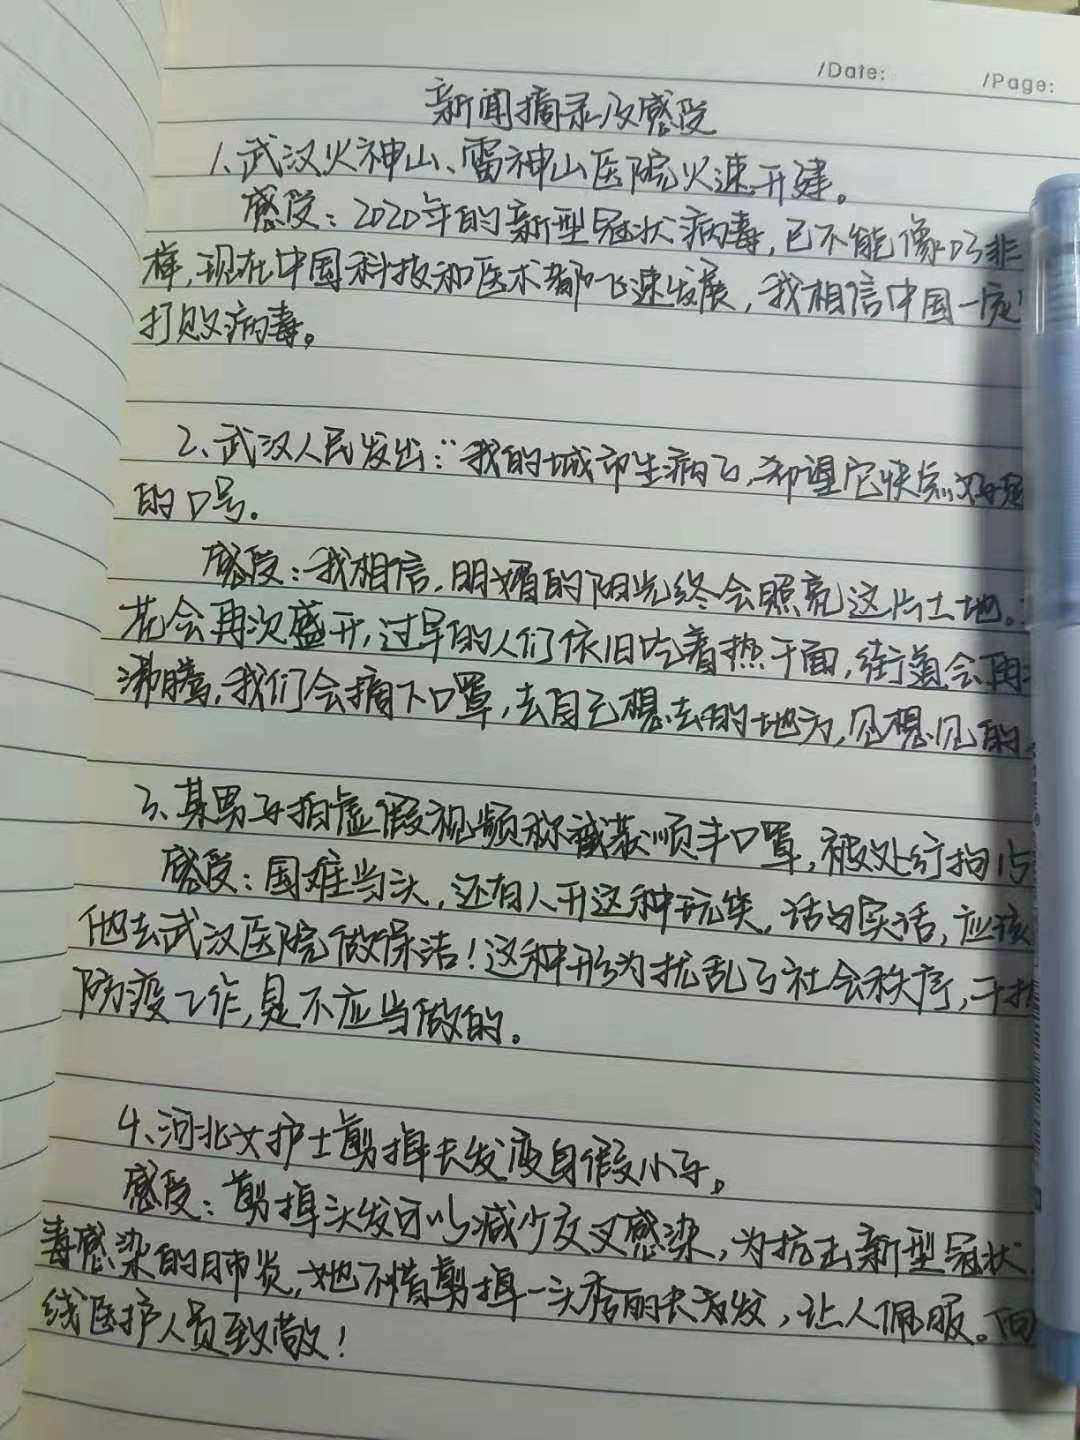 /Date: /Page:
新闻摘录及感受
1、武汉火神山、雷神山医院火速开建。
感受：2020年的新型冠状病毒，已不能像以非
样，现在中国科技和医术都飞速发展，我相信中国一定
打败病毒。
2、武汉人民发出：“我的城市生病了，希望它快点好起
的口号。
感受：我相信，明媚的阳光终会照亮这片土地。
花会再次盛开，过早的人们依旧吃着热干面，街道会再
沸腾，我们会摘下口罩，去自己想去的地方，见想见的
3、某男子拍虚假视频称截获顺丰口罩，被处行拘15
感受：国难当头，还有人开这种玩笑，话句实话，应该
他去武汉医院做保洁！这种形为扰乱了社会秩序，干扰
防疫工作，是不应当做的。
4、河北女护士剪掉长发变身假小子。
感受：剪掉头发可以减少交叉感染，为抗击新型冠状
毒感染的肺炎，她不惜剪掉一头秀丽的长发，让人佩服。向
线医护人员致敬！